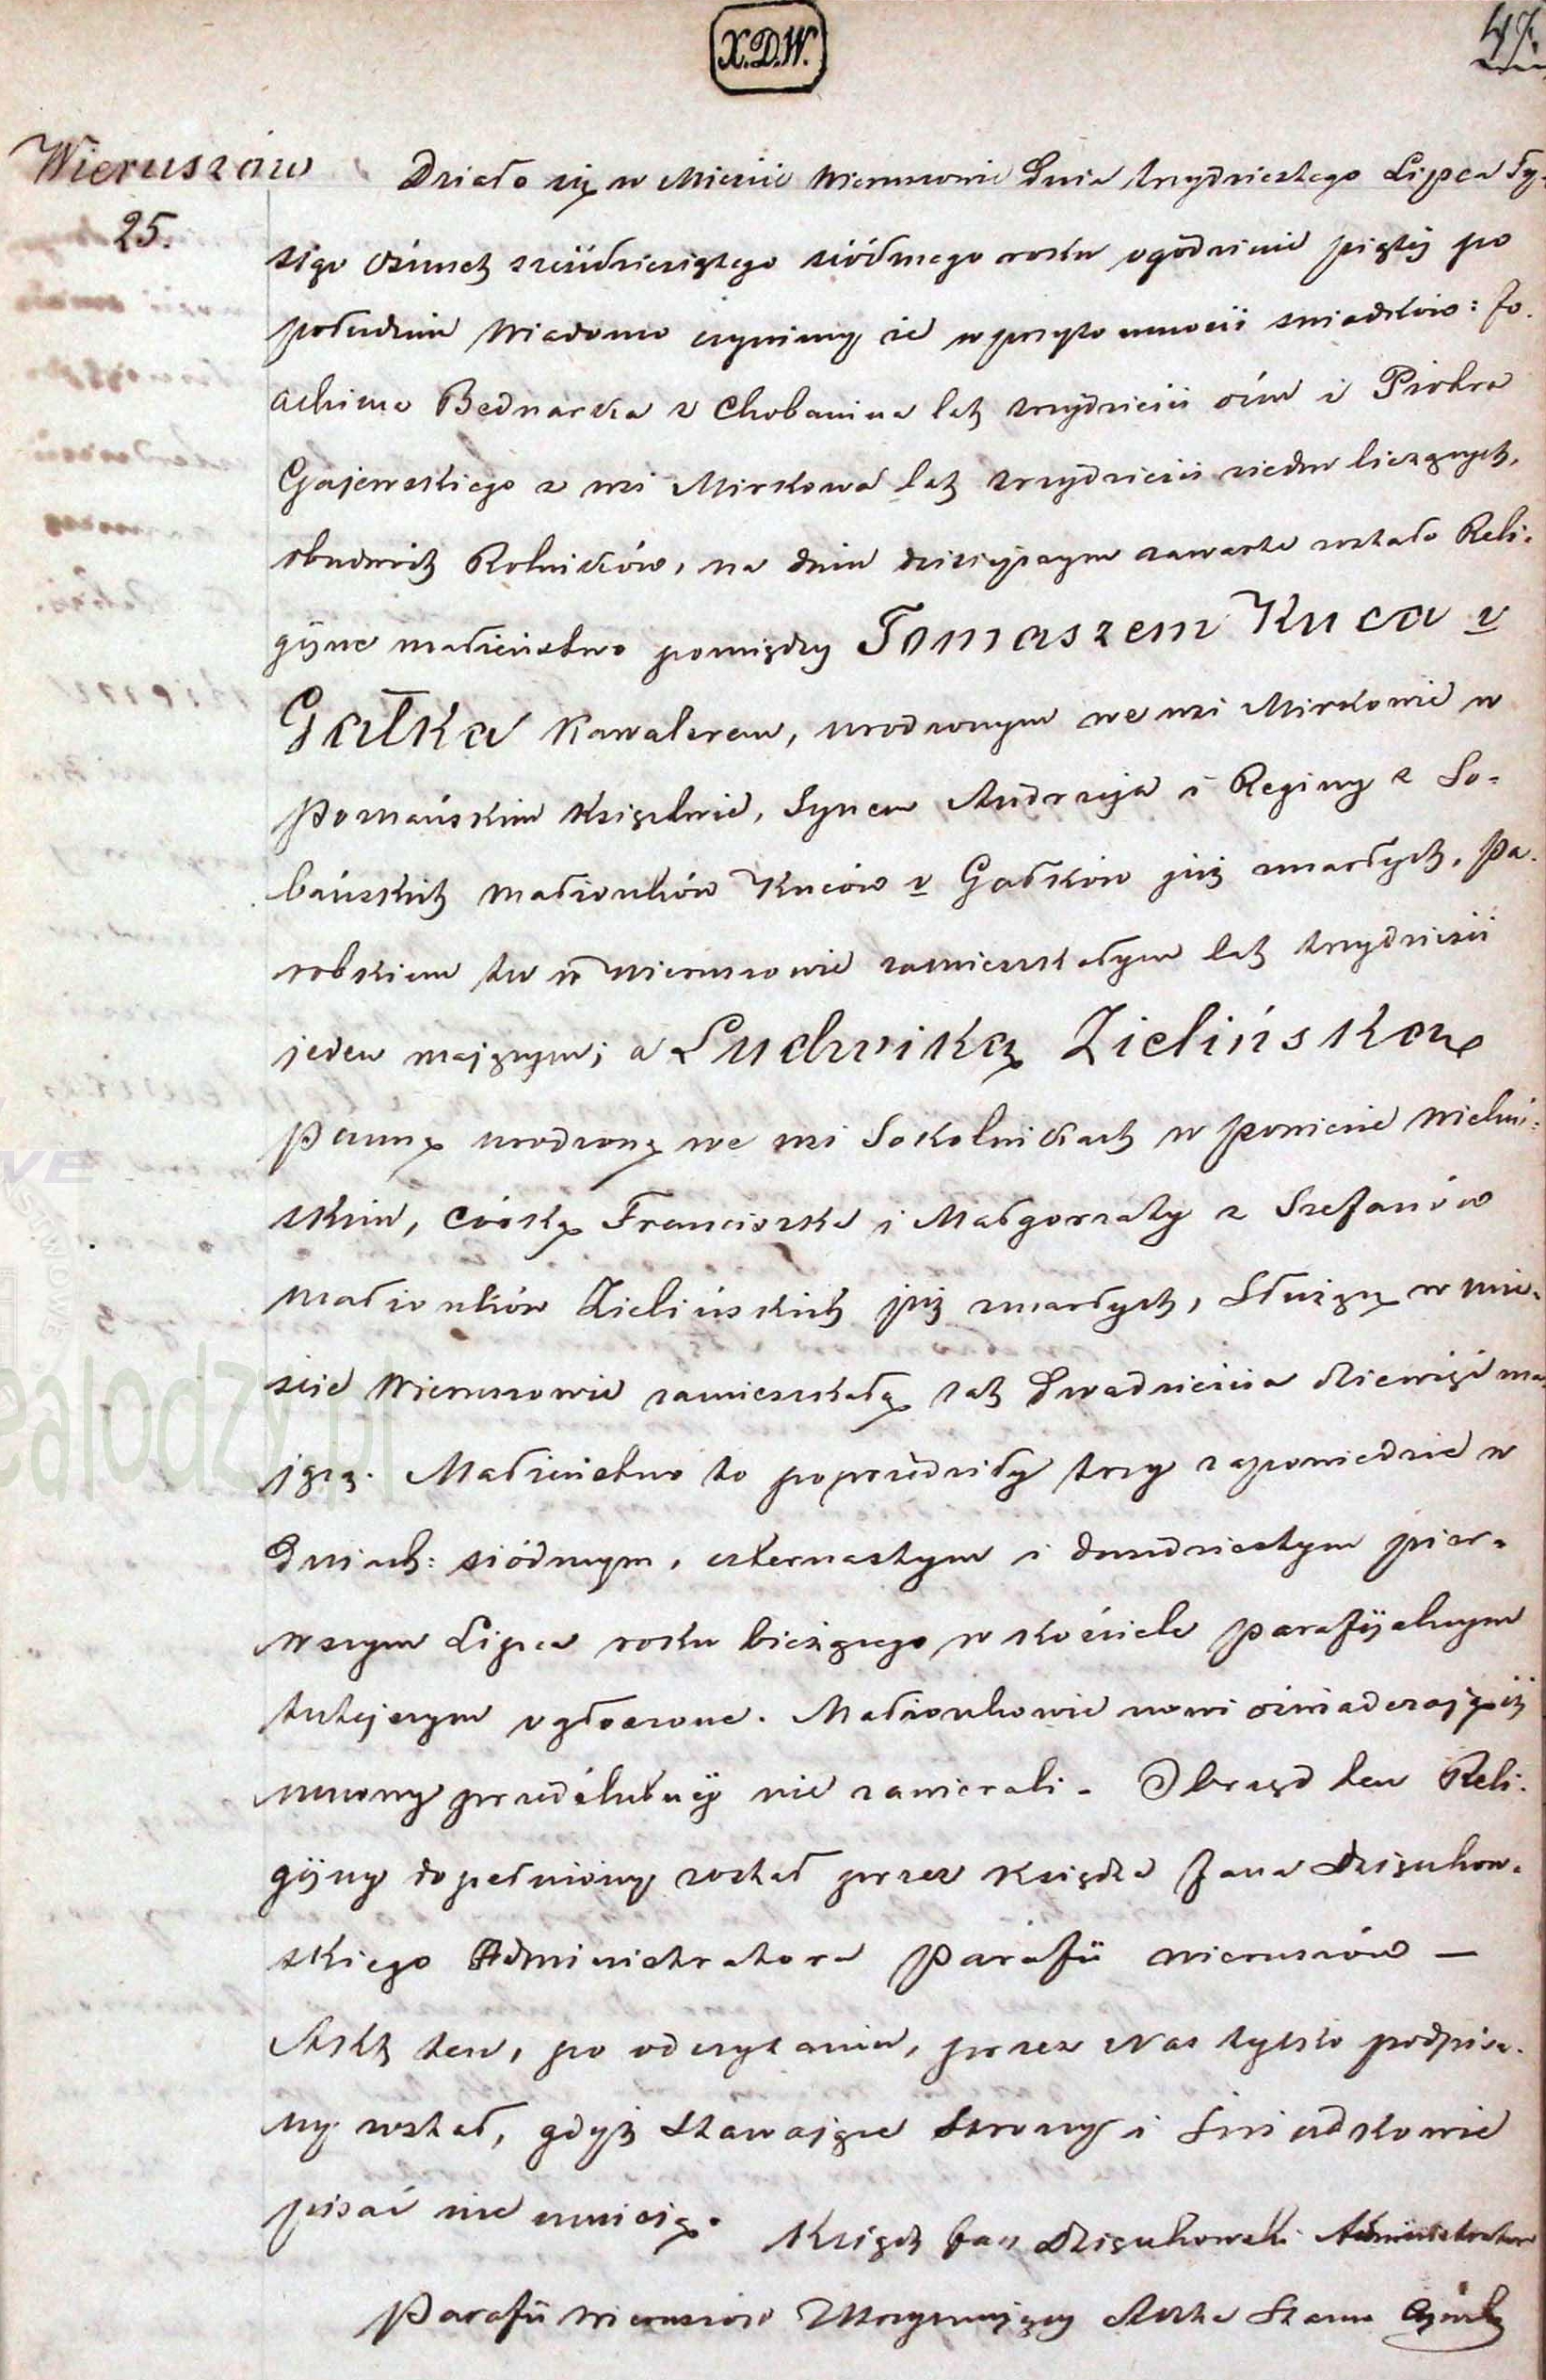 X.D.W.
47.
Wieruszów
25.
Działo się w Mieście Wieruszowie dnia trzydziestego Lipca Ty-
siąc ośmset sześdziesiątego siódmego roku o godzinie piątéj po
południu Wiadomo czynimy że w przytomności świadków: Jo-
achima Bednarza z Chobanina lat trzydzieści ośm i Piotra
Gajewskiego z wsi Mirkowa lat trzydzieści siedm liczących,
obudwóch Rolników, na dniu dzisiejszym zawarte zostało Reli-
gijne małżeństwo pomiędzy Tomaszem Kuca v
Gałka Kawalerem, urodzonym we wsi Mirkowie w
Poznańskim Księstwie, Synem Andrzeja i Reginy z So-
bańskich małżonków Kuców v Gałków już zmarłych, Pa-
robkiem tu w Wieruszowie zamieszkałym lat trzydzieści
jeden mającym; a Ludwiką Zielińską
Panną urodzoną we wsi Sokolnikach w Powiecie Wieluń-
skim, córką Franciszka i Małgorzaty z Szefanów
małżonków Zielińskich już zmarłych, Służącą w mie-
ście Wieruszowie zamieszkałą lat dwadzieścia dziewięć ma-
jącą. Małżeństwo to poprzedziły trzy zapowiedzie w
dniach: siódmym, czternastym i dwudziestym pier-
wszym Lipca roku bieżącego w kościele parafijalnym
tutejszym ogłoszone. Małżonkowie nowi oświadczają iż
umowy przedślubnéj nie zawierali. Obrząd ten Reli-
gijny dopełniony został przez Księdza Jana Dzięukow-
skiego Administratora Parafii Wieruszów —
Akt ten, po odczytaniu, przez Nas tylko podpisa-
ny został, gdyż Stawające Strony i Świadkowie
pisać nie umieją.
Ksiądz Jan Dzięukowski Administrator
Parafii Wieruszów Utrzymujący Akta Stanu Cywil